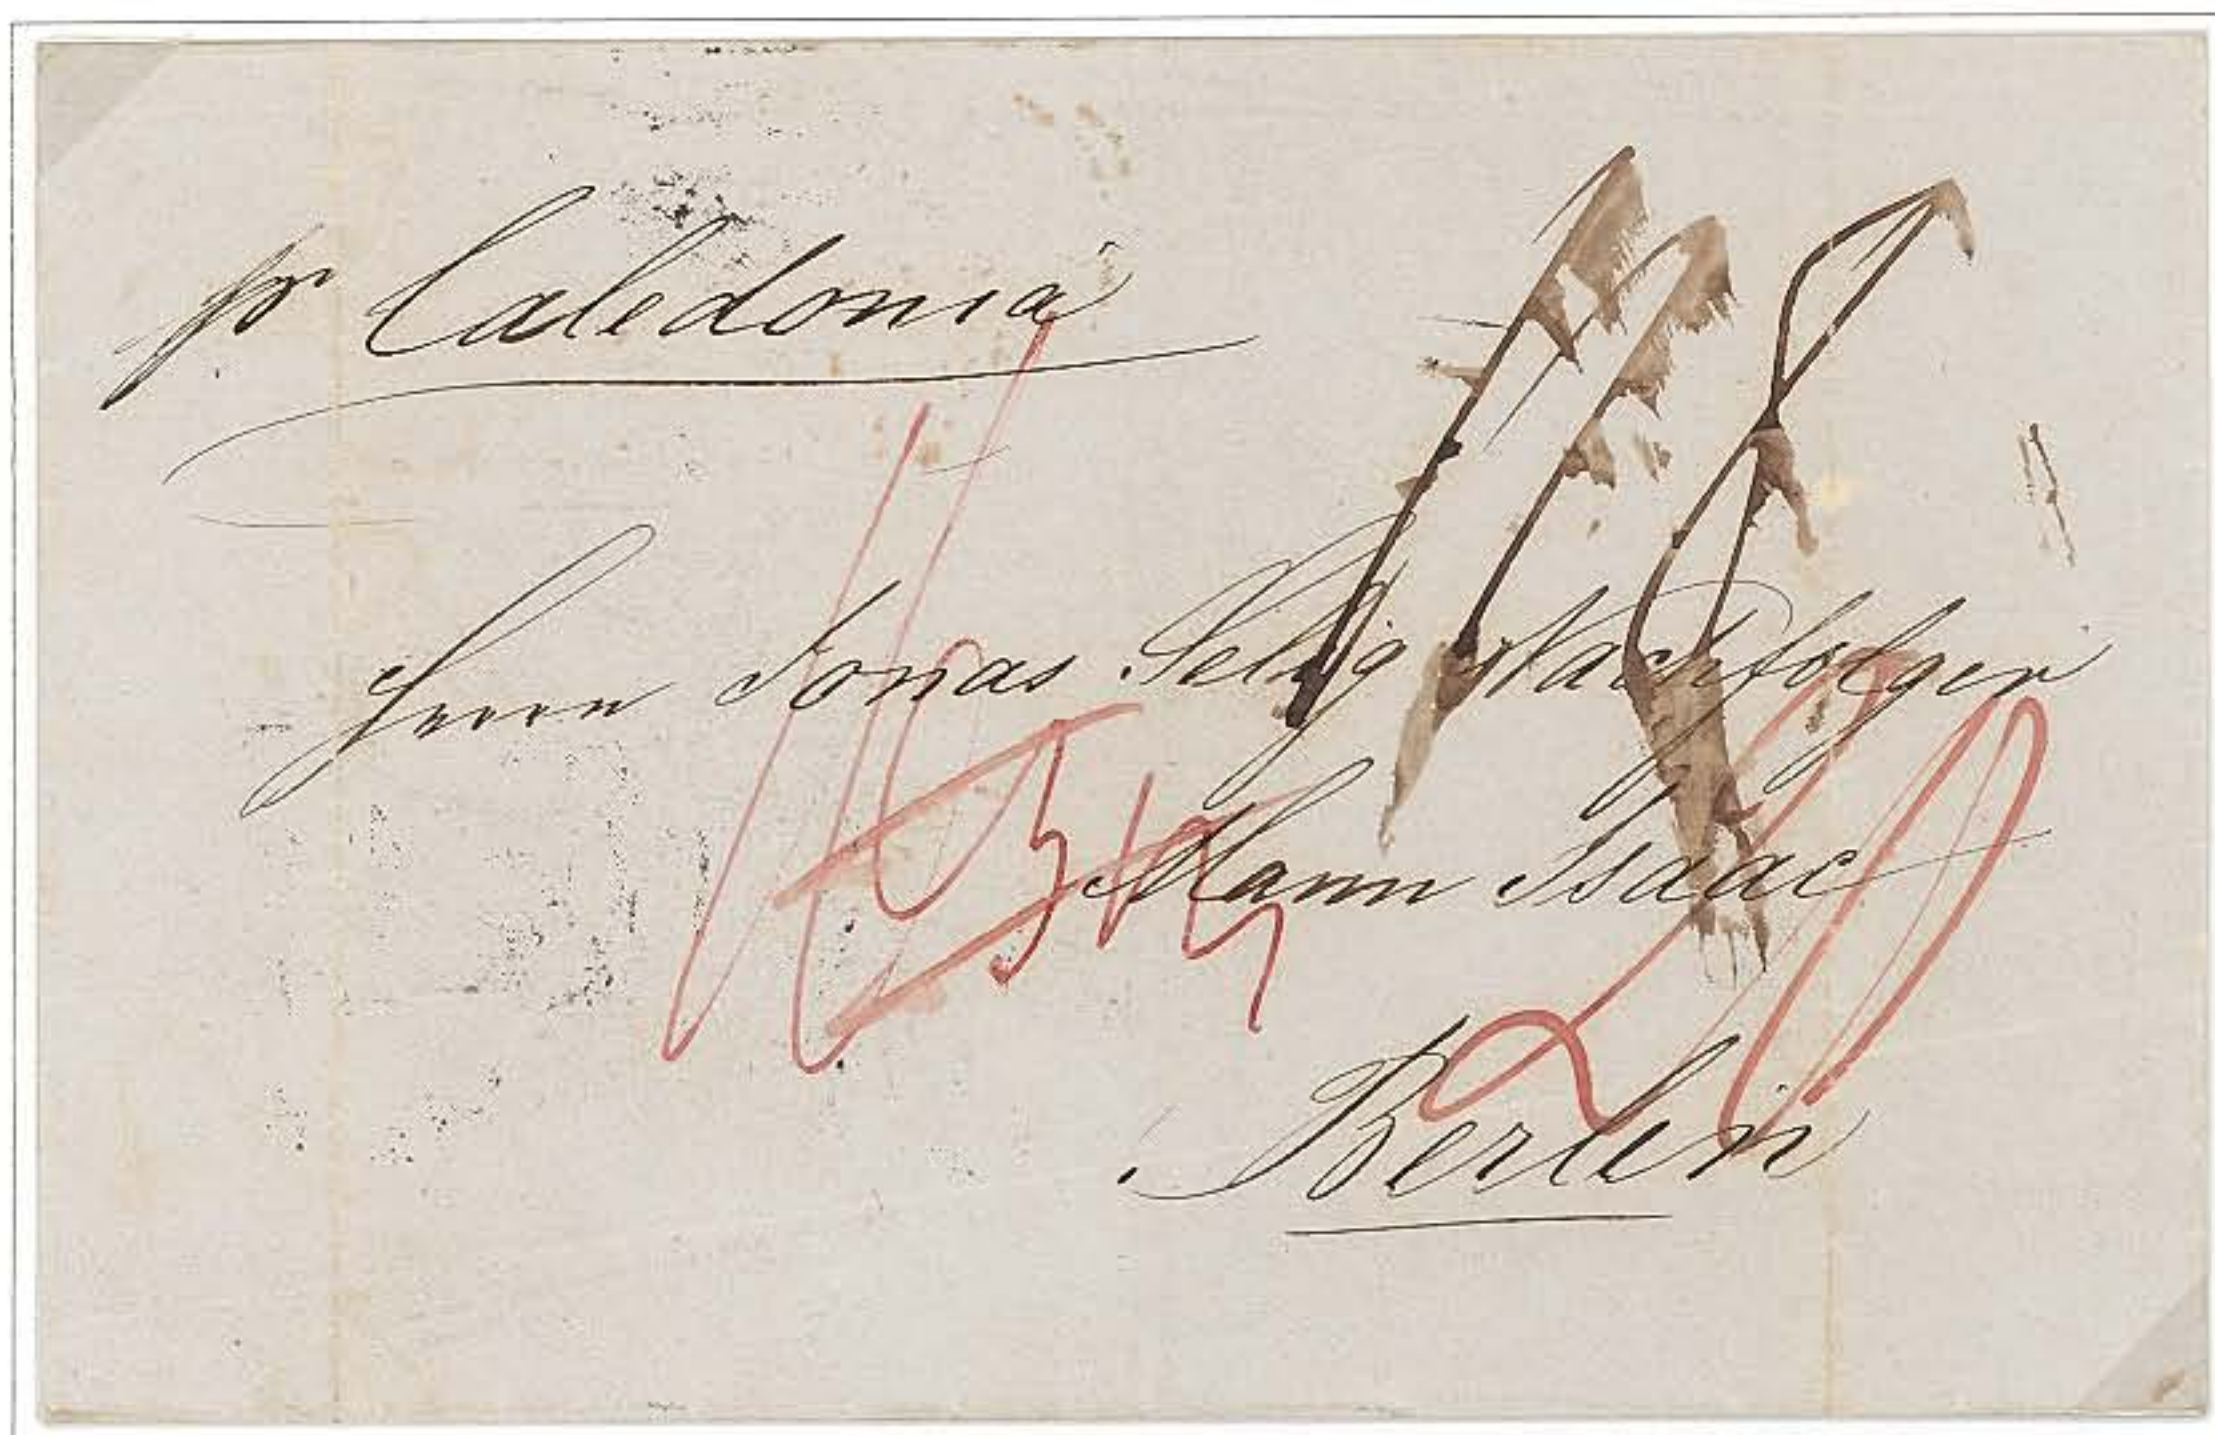 pr Caledonia
Herrn Jonas Selig Nachfolger
Mann Isaac
Berlin
20